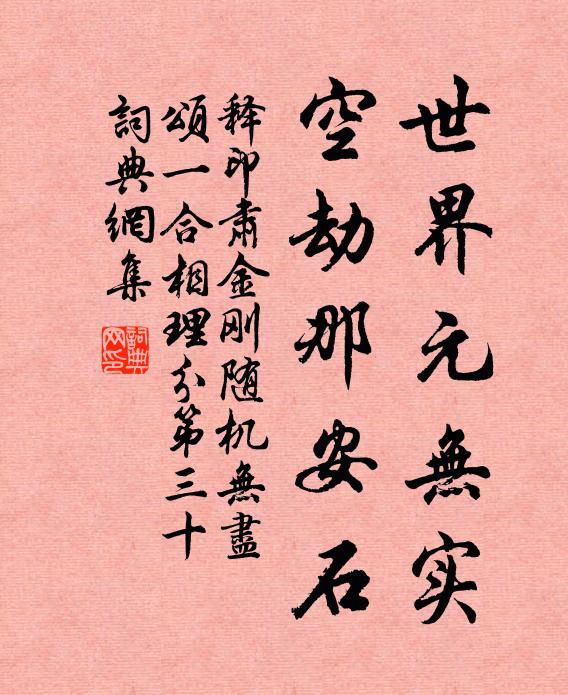 世界元無实
空劫那安石
释印肃金刚随机無盡
頌一合相理分第三十
詞典網集
詞典网印